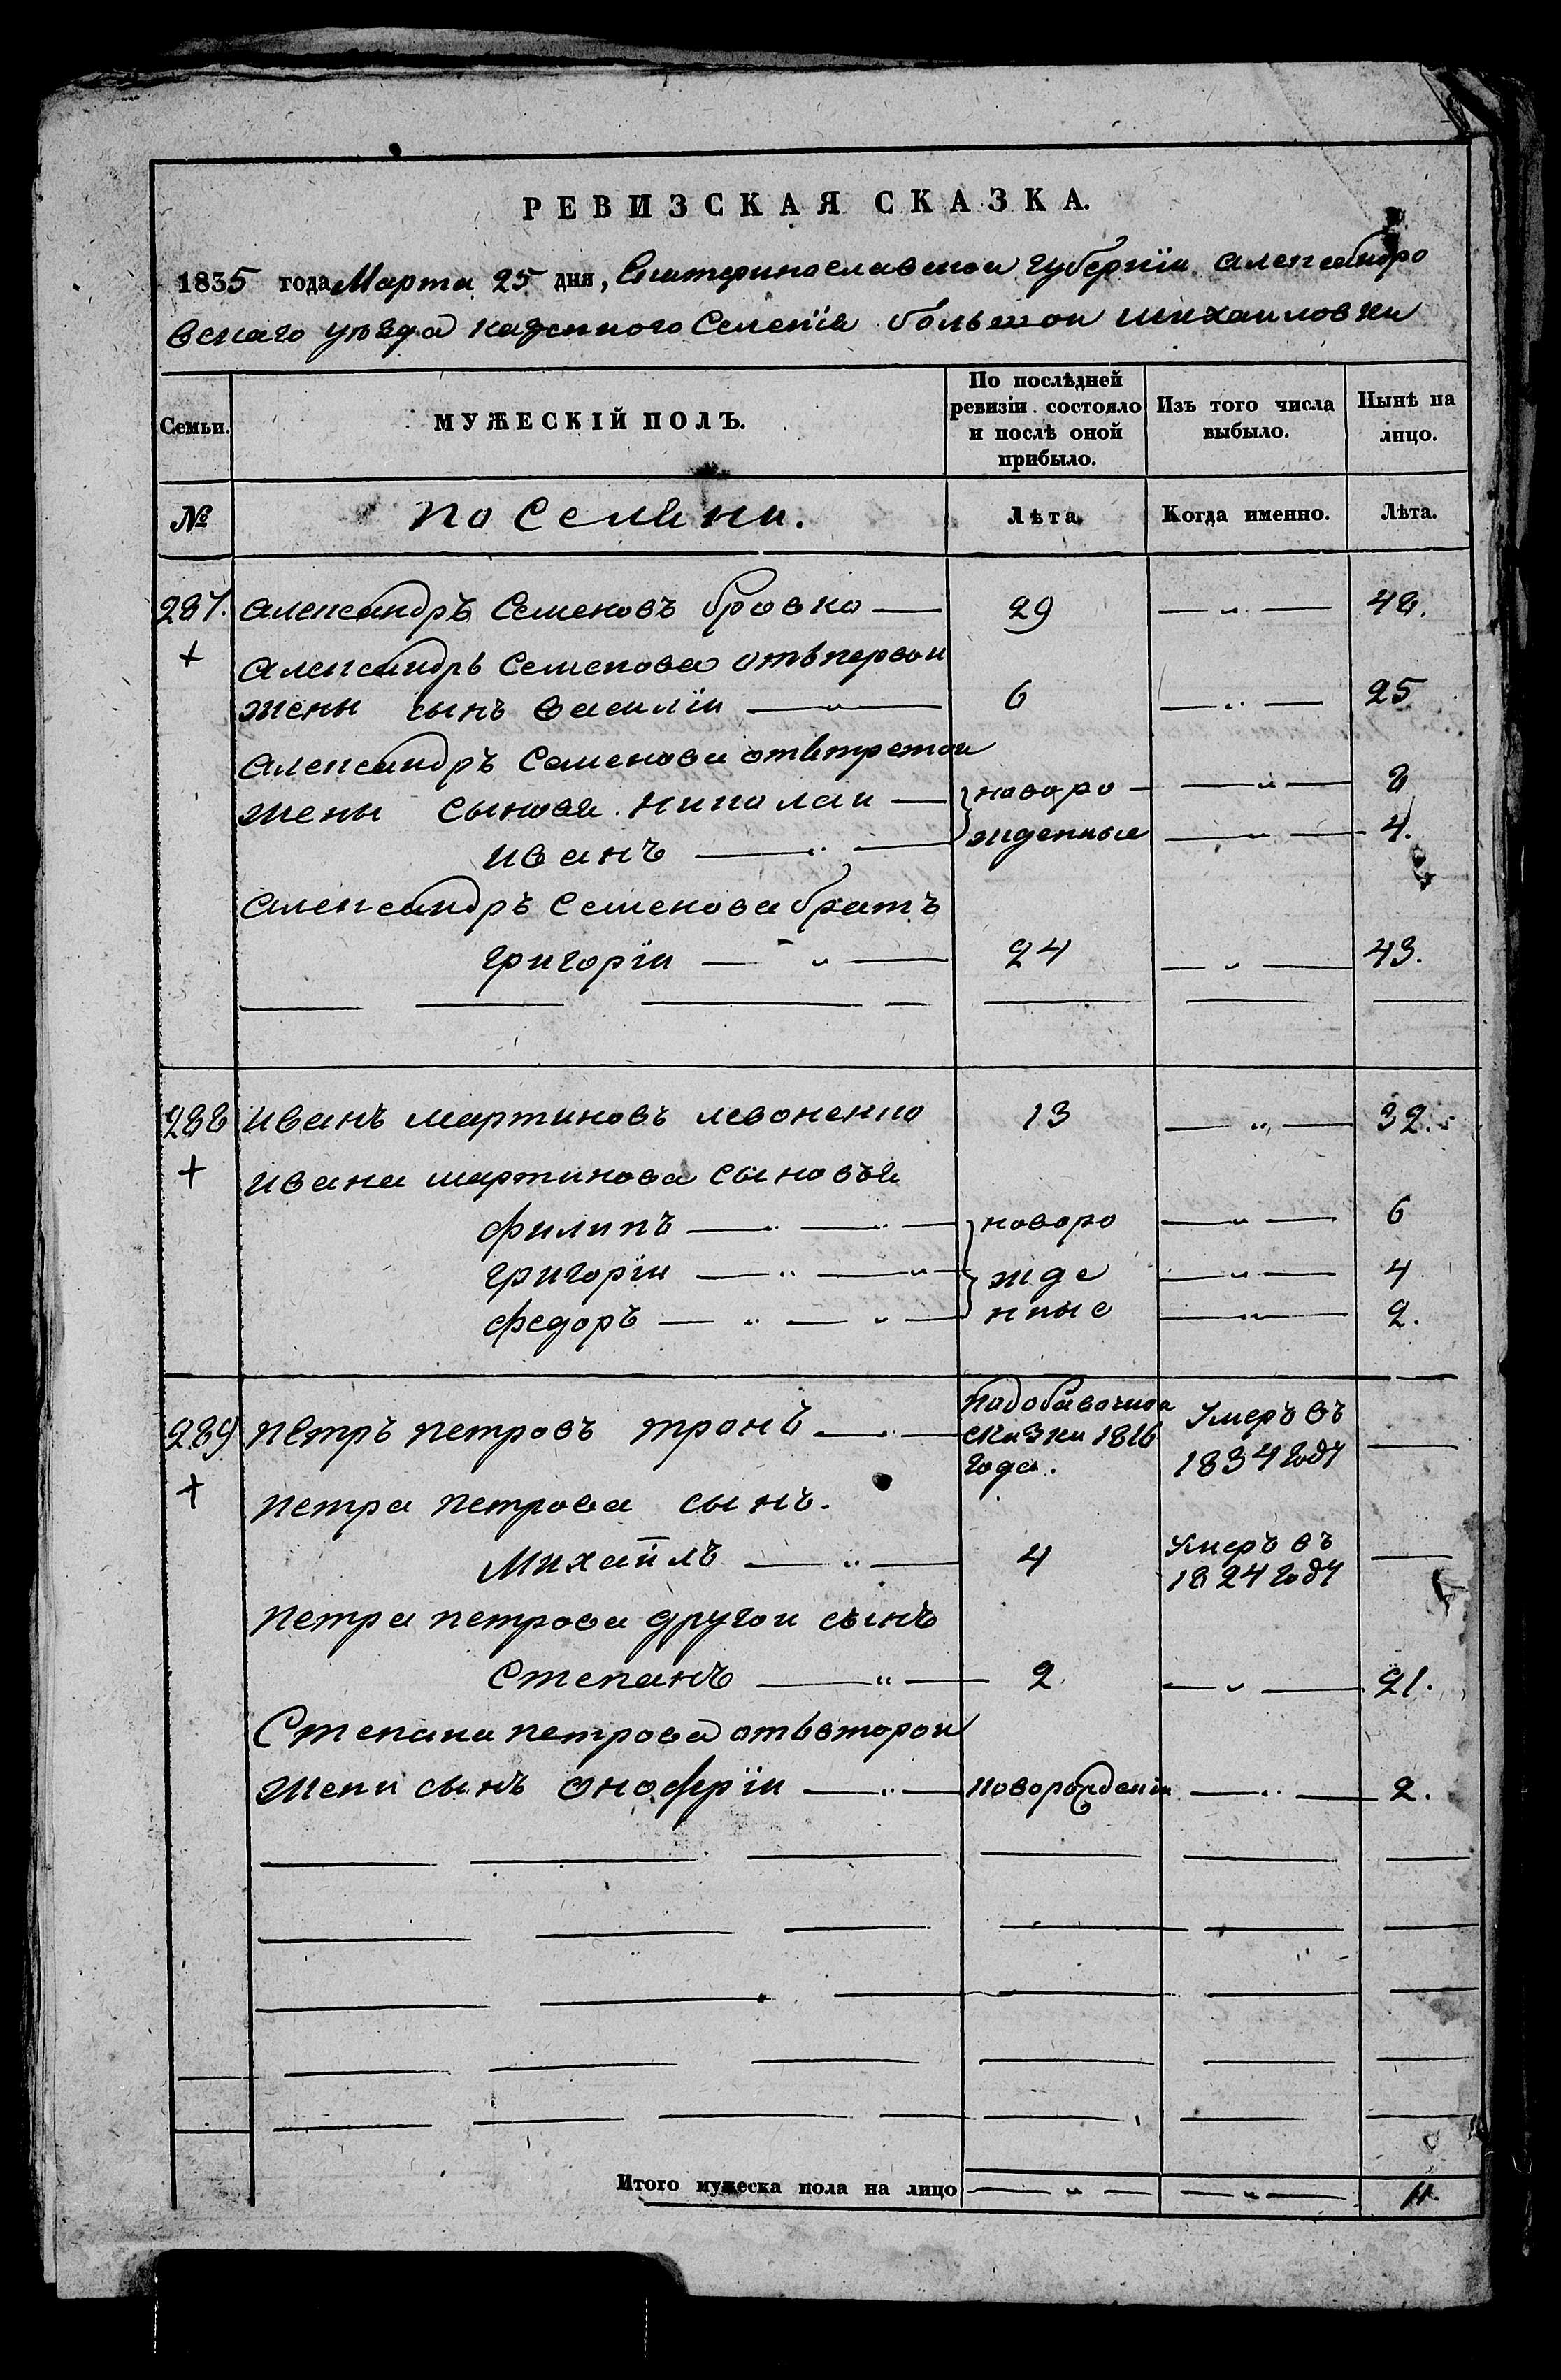 РЕВИЗСКАЯ СКАЗКА.
1835 года Марта 25 дня, Екатеринославской губернїи Александро
вскаго уезда казенного Селенїя большои михаиловки
Семьи. МУЖЕСКІЙ ПОЛЪ. По послѣдней ревизіи состояло и послѣ оной прибыло. Изъ того числа выбыло. Нынѣ на лицо.
№ Лѣта. Когда именно. Лѣта.
287. Александръ Семеновъ бровко — 29 — „ — 48.
+ Александръ Семенова отъпервои
жены сынъ василїи — „ — 6 — „ — 25
Александръ Семенова отътретои
жены сыновя николаи — новоро — „ — 8
иванъ — „ — жденные — „ — 4.
Александръ Семенова братъ
григорїи — „ — 24 — „ — 43.
288 иванъ мартиновъ левоненко 13 — „ — 32.
+ ивана мартинова сыновъя
филипъ — „ — новоро — „ — 6
григорїи — „ — „ жде — „ — 4
федоръ — „ — „ — нные — „ — 2.
289 петръ петровъ тронъ — „ — сказки 1816 года. Умеръ въ 1834 году —
+ петра петрова сынъ.
Михаилъ — „ — 4 Умеръ въ 1824 году —
петра петрова другои сынъ
Степанъ — „ — 2 — „ — 21.
Степана петрова отъвторои
жени сынъ онофрїи — „ — новорожденїи — „ — 2.
Итого мужеска пола на лицо — „ — — „ — 11.